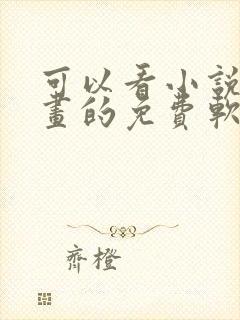 可以看小說
畫的免費軟
齊橙